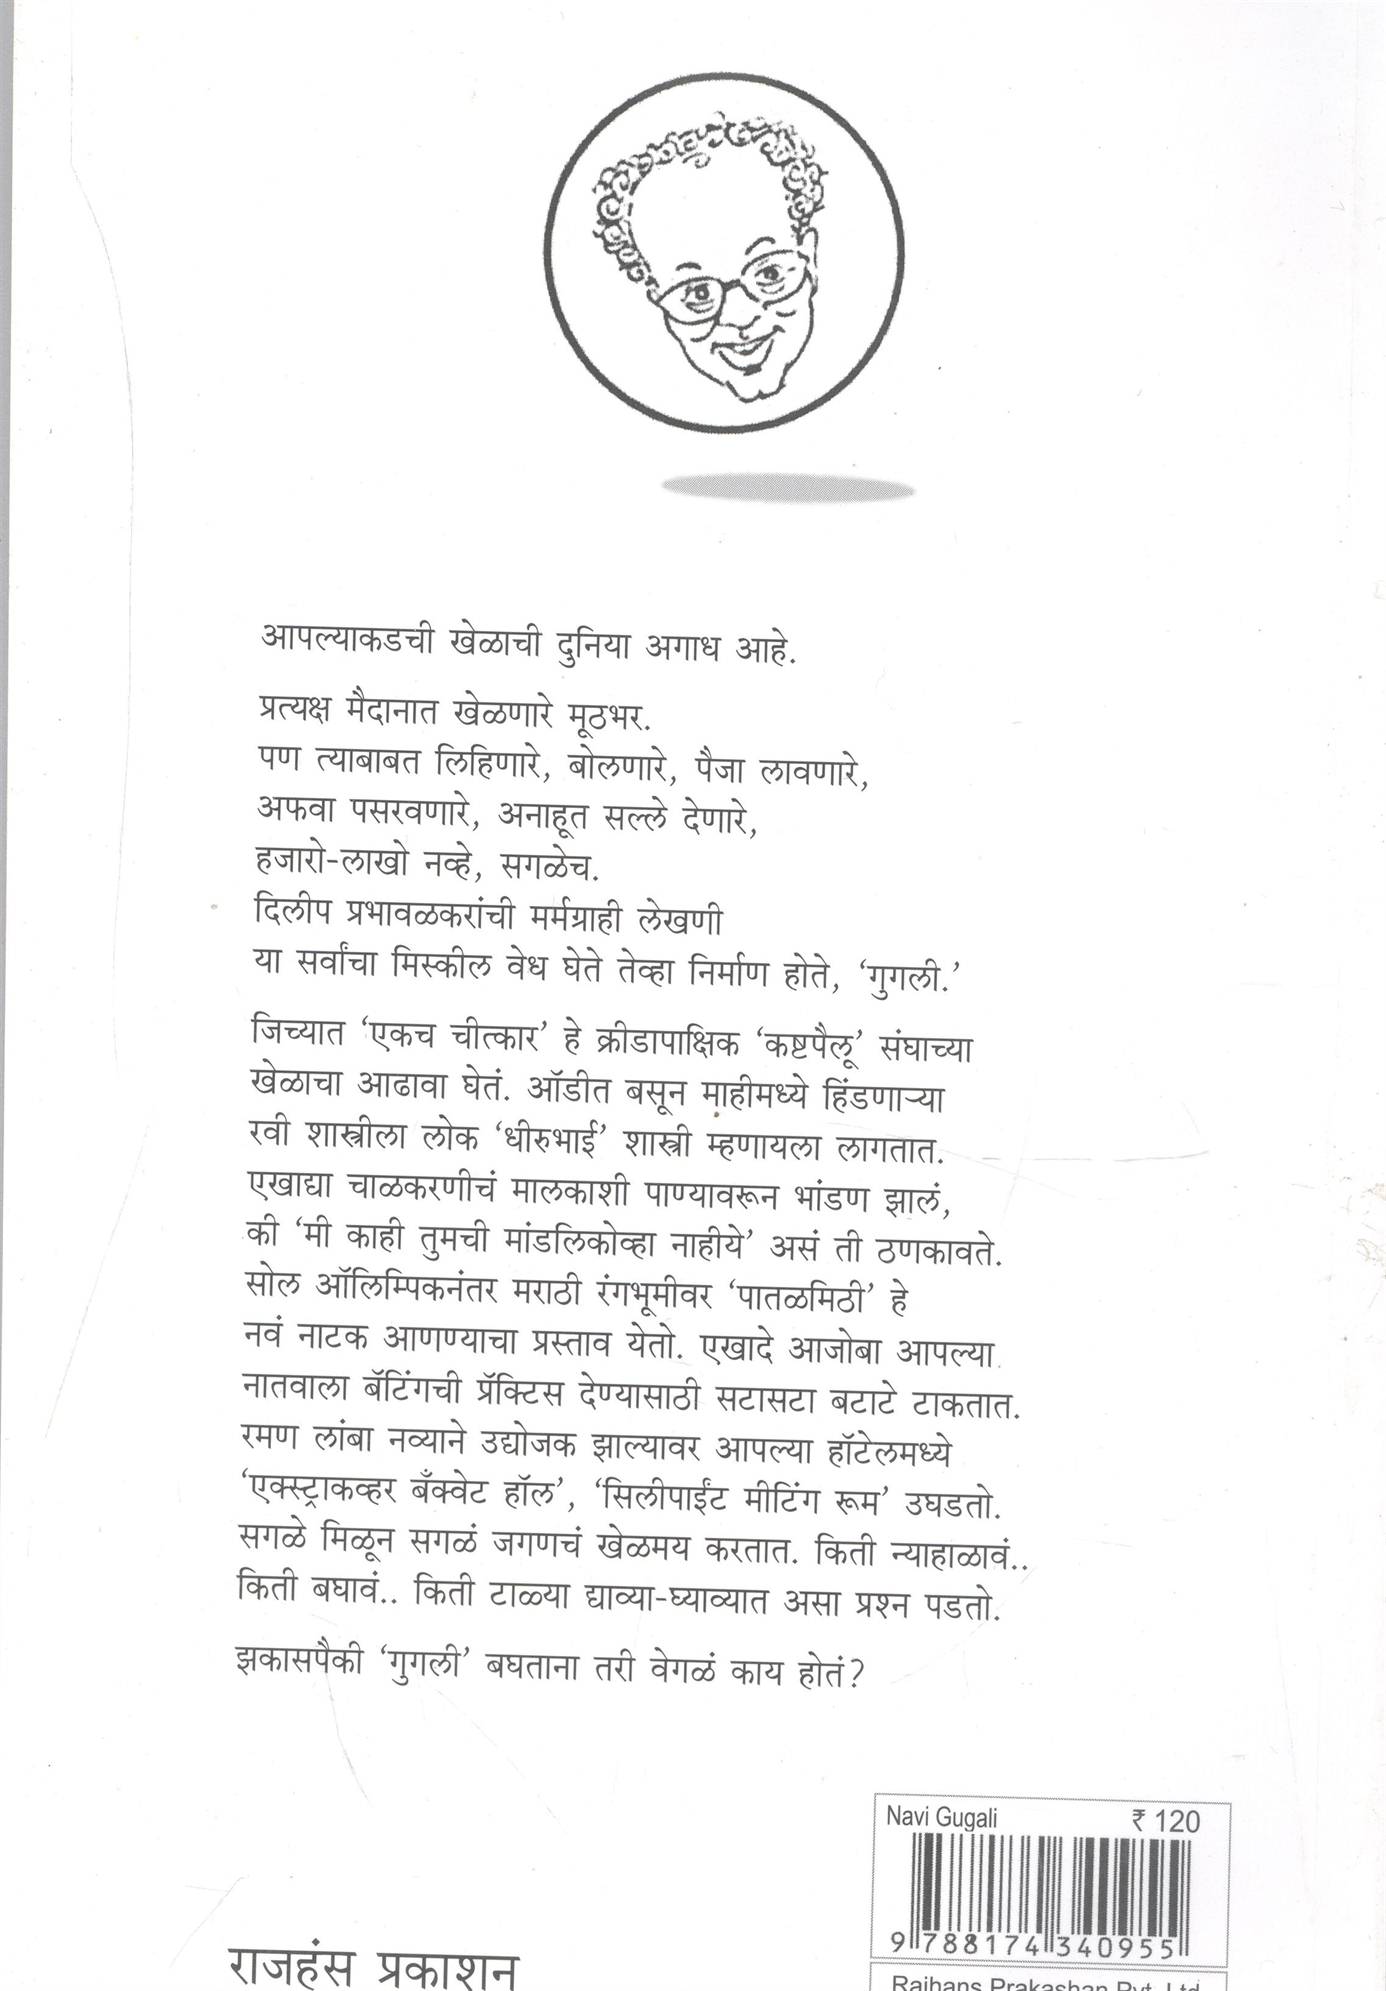 आपल्याकडची खेळाची दुनिया अगाध आहे.
प्रत्यक्ष मैदानात खेळणारे मूठभर.
पण त्याबाबत लिहिणारे, बोलणारे, पैजा लावणारे,
अफवा पसरवणारे, अनाहूत सल्ले देणारे,
हजारो-लाखो नव्हे, सगळेच.
दिलीप प्रभावळकरांची मर्मग्राही लेखणी
या सर्वांचा मिस्कील वेध घेते तेव्हा निर्माण होते, ‘गुगली.’
जिच्यात ‘एकच चीत्कार’ हे क्रीडापाक्षिक ‘कष्टपैलू’ संघाच्या
खेळाचा आढावा घेतं. ऑडीत बसून माहीमध्ये हिंडणाऱ्या
रवी शास्त्रीला लोक ‘धीरुभाई’ शास्त्री म्हणायला लागतात.
एखाद्या चाळकरणीचं मालकाशी पाण्यावरून भांडण झालं,
की ‘मी काही तुमची मांडलिकोव्हा नाहीये’ असं ती ठणकावते.
सोल ऑलिम्पिकनंतर मराठी रंगभूमीवर ‘पातळमिठी’ हे
नवं नाटक आणण्याचा प्रस्ताव येतो. एखादे आजोबा आपल्या
नातवाला बॅटिंगची प्रॅक्टिस देण्यासाठी सटासटा बटाटे टाकतात.
रमण लांबा नव्याने उद्योजक झाल्यावर आपल्या हॉटेलमध्ये
‘एक्स्ट्राकव्हर बँक्वेट हॉल’, ‘सिलीपाईंट मीटिंग रूम’ उघडतो.
सगळे मिळून सगळं जगणचं खेळमय करतात. किती न्याहाळावं..
किती बघावं.. किती टाळ्या द्याव्या-घ्याव्यात असा प्रश्न पडतो.
झकासपैकी ‘गुगली’ बघताना तरी वेगळं काय होतं?
Navi Gugali ₹ 120
9 788174 340955
राजहंस प्रकाशन
Rajhans Prakashan Pvt. Ltd.